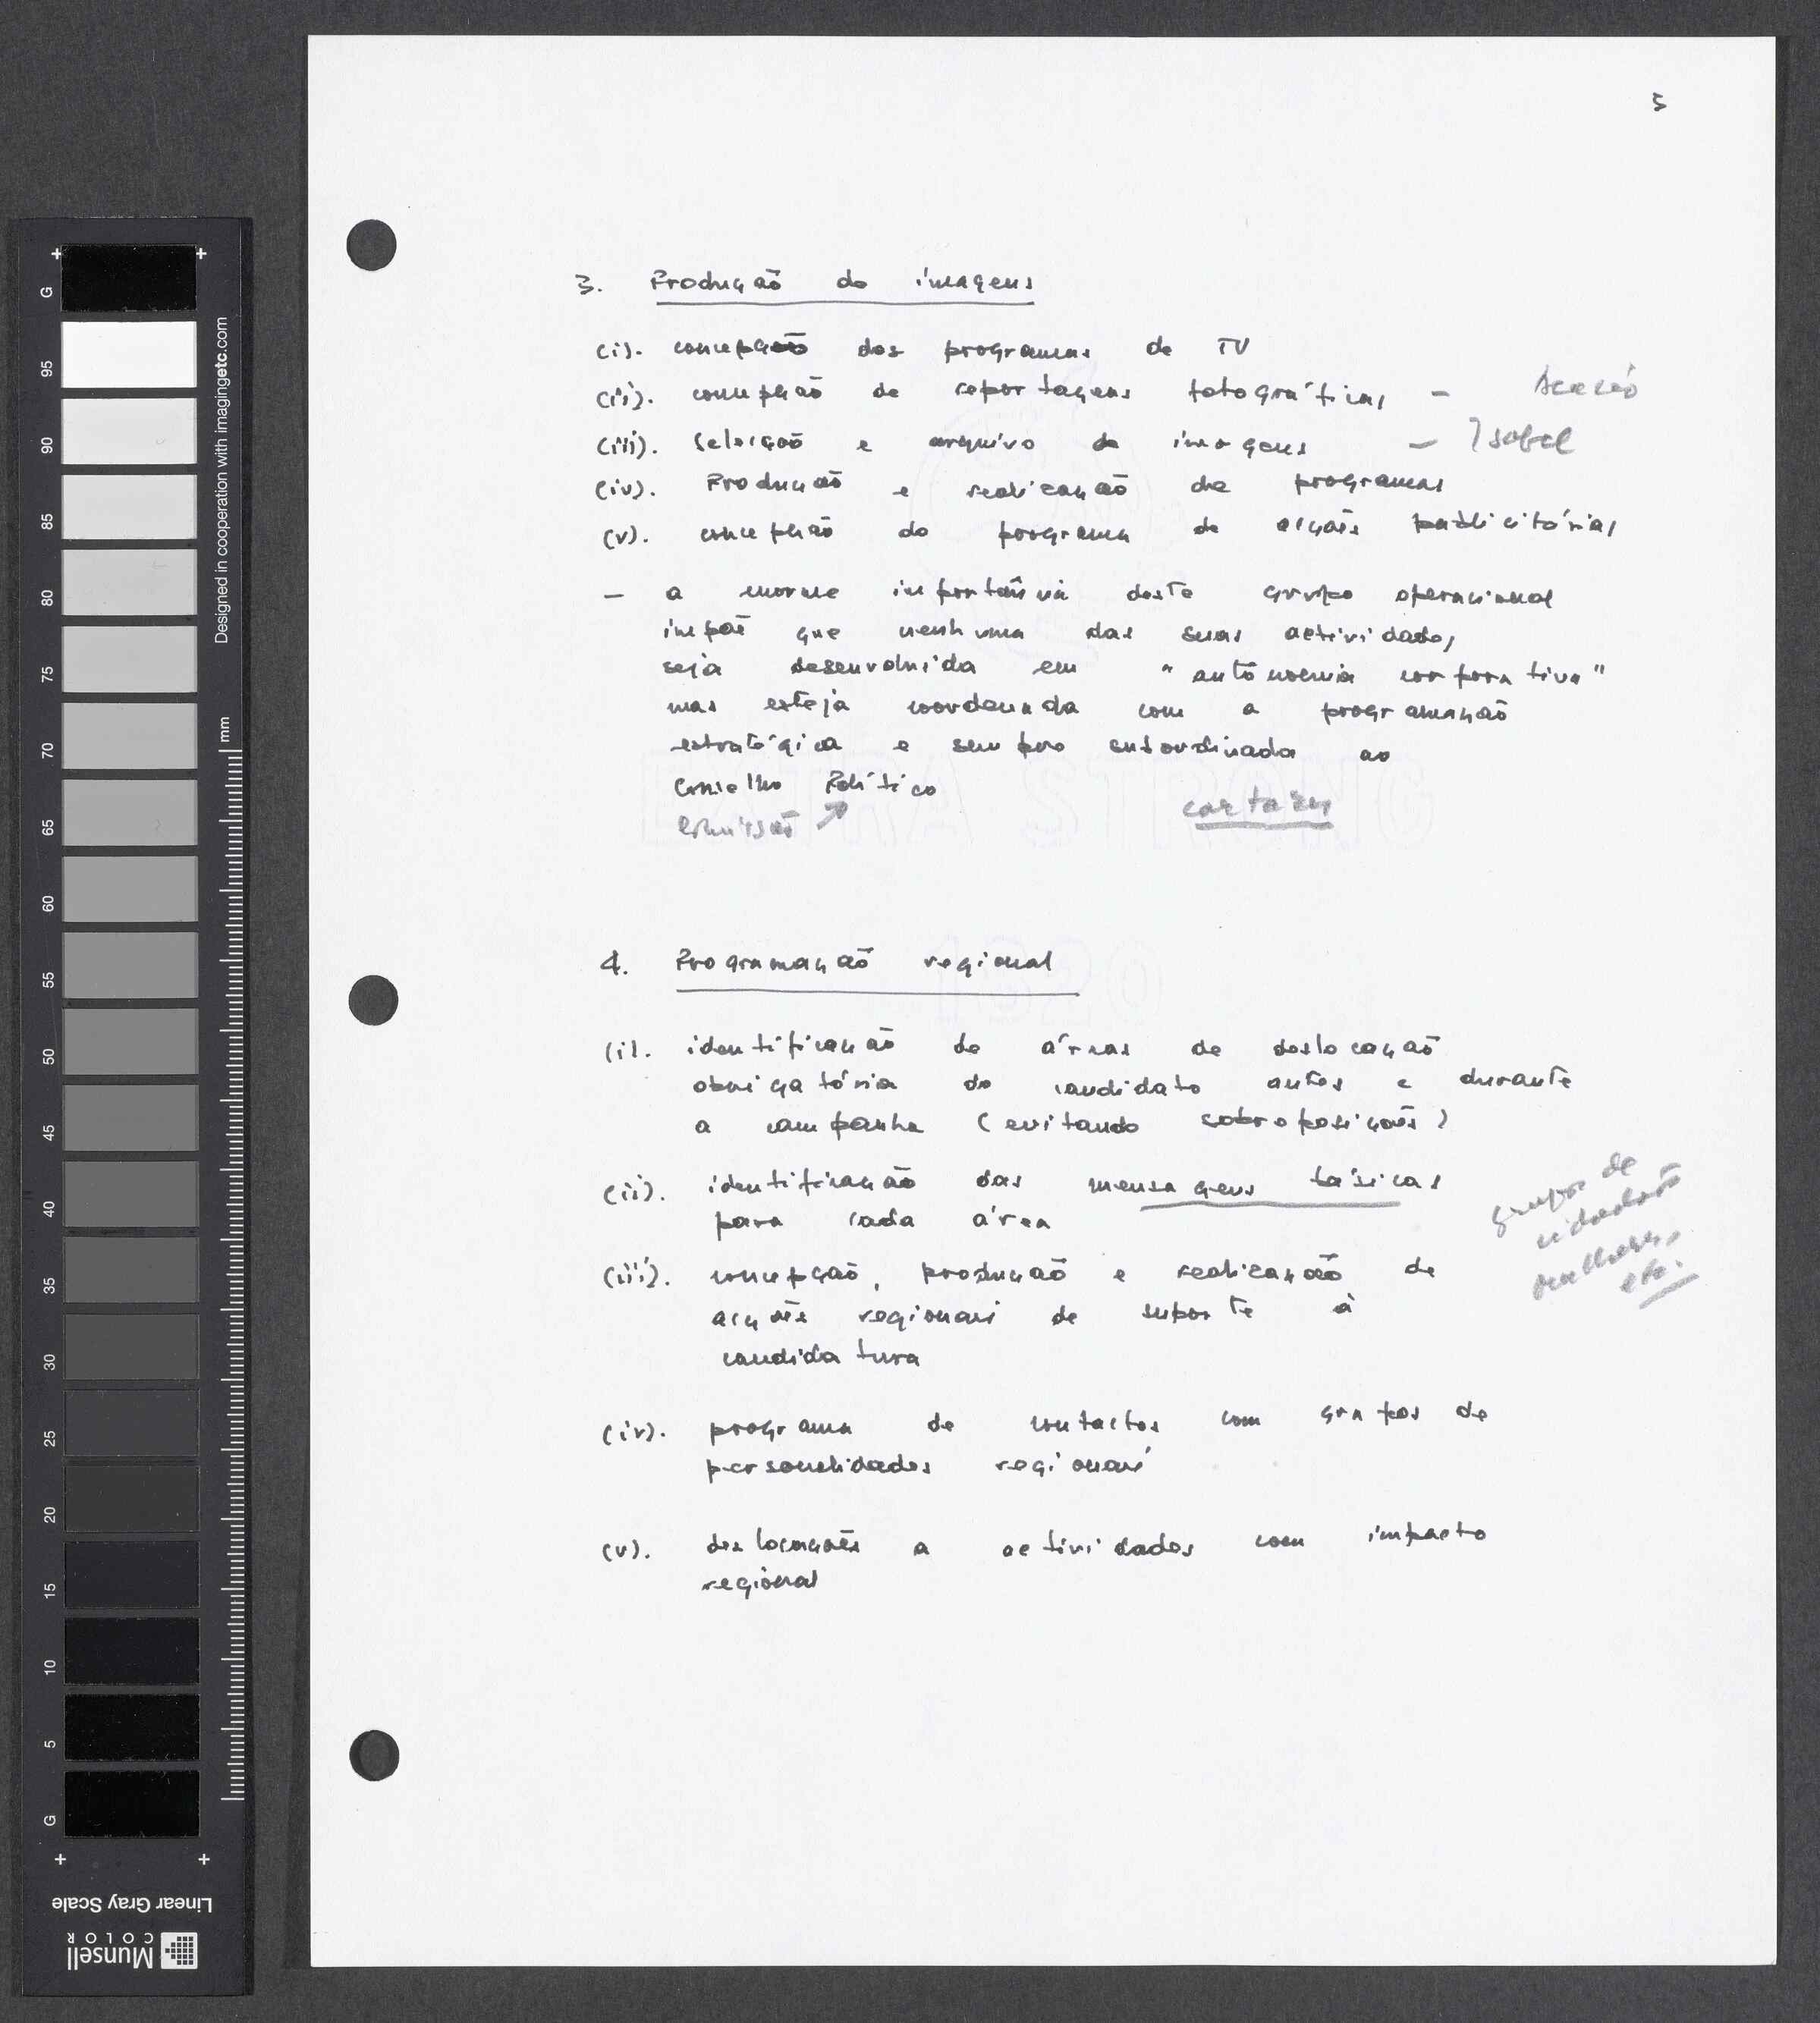 5
3. Produção de imagens
(i). concepção dos programas de TV
(ii). concepção de reportagens fotográficas –
(iii). Selecção e arquivo de imagens – Isabel
(iv). Produção e realização de programas
(v). concepção do programa de acções publicitárias
– a enorme importância deste grupo operacional
impõe que nenhuma das suas actividades
seja desenvolvida em "autonomia corporativa"
mas esteja coordenada com a programação
estratégica e sempre subordinada ao
Conselho Político
Comissão ↗ cartazes
4. Programação regional
(i). identificação de áreas de deslocação
obrigatória do candidato antes e durante
a campanha (evitando sobreposições)
(ii). identificação das mensagens básicas
para cada área
grupos de
cidadãos
mulheres,
etc.
(iii). concepção, produção e realização de
acções regionais de suporte à
candidatura
(iv). programa de contactos com grupos de
personalidades regionais
(v). deslocações a actividades com impacto
regional
EXTRA STRONG
1320
G
95
90
85
80
75
70
65
60
55
50
45
40
35
30
25
20
15
10
5
G
Designed in cooperation with imagingetc.com
mm
Linear Gray Scale
Munsell
COLOR